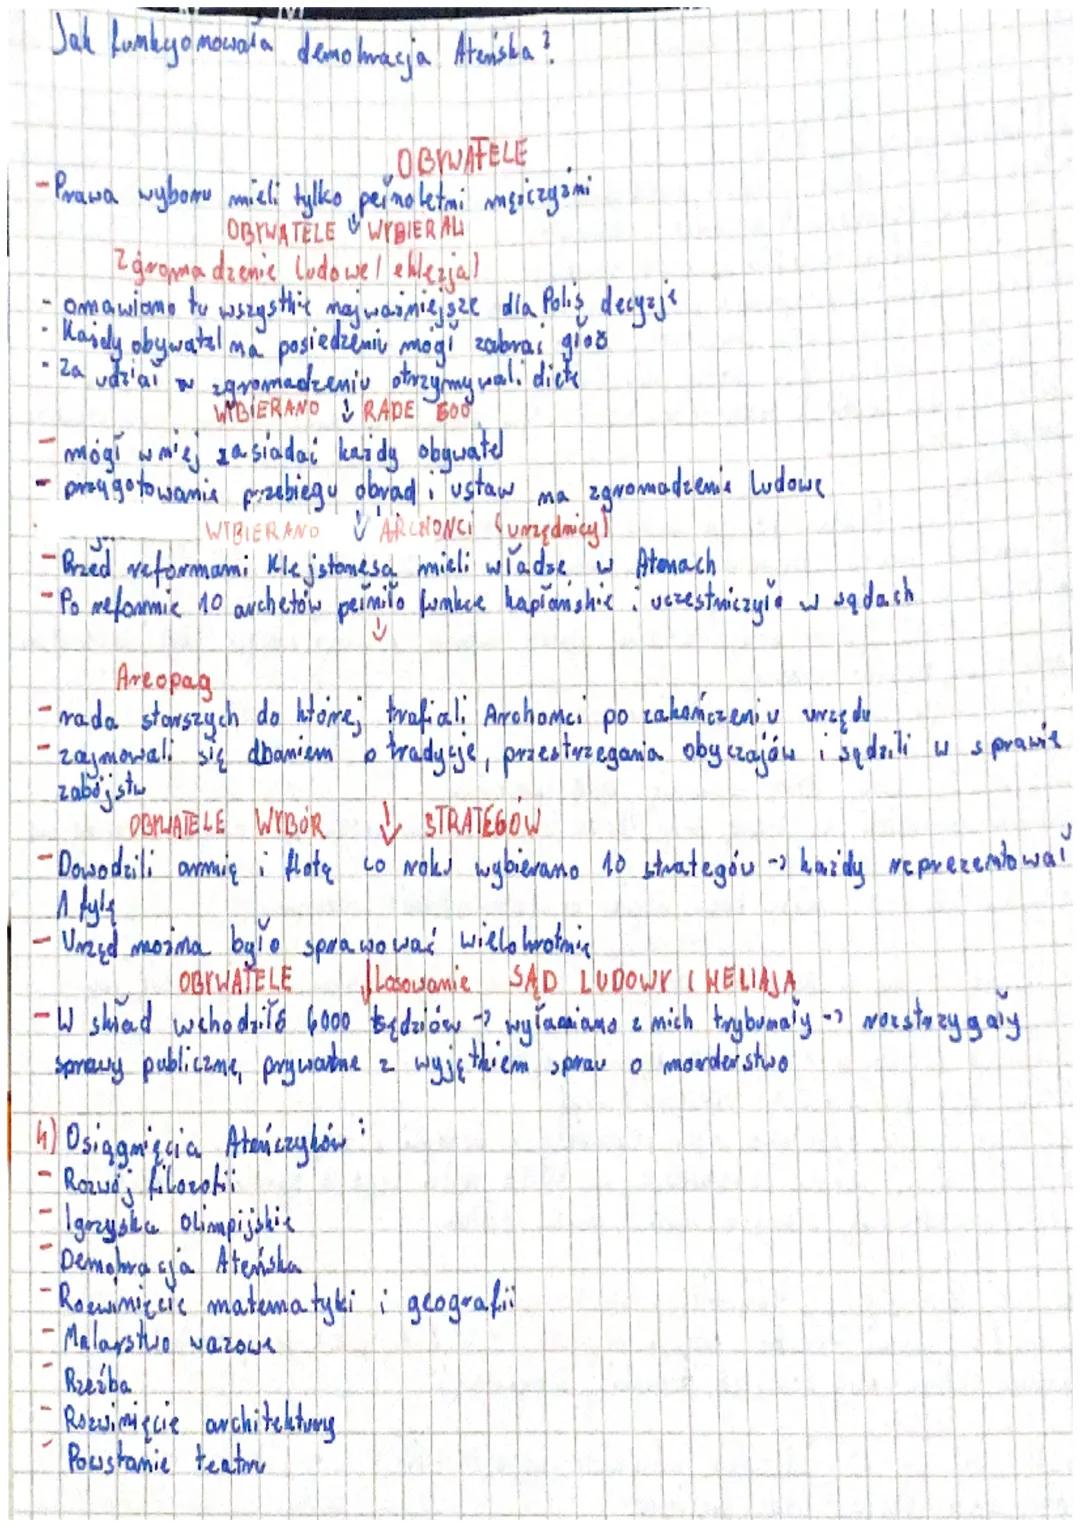 Jak funkcjonowała demokracja Ateńska?
OBYWATELE
- Prawa wyboru mieli tylko pełnoletni mężczyźni
OBYWATELE ↓ WYBIERALI
Zgromadzenie ludowe ( eklezja)
- omawiano tu wszystkie najważniejsze dla Polis decyzje
- Każdy obywatel na posiedzeniu mógł zabrać głos
- Za udział w zgromadzeniu otrzymywali diete
WYBIERANO ↓ RADE 500
- mógł w niej zasiadać każdy obywatel
- przygotowanie przebiegu obrad i ustaw na zgromadzenie ludowe
WYBIERANO ↓ ARCHONCI (urzędnicy)
- Przed reformami Klejstenesa mieli władze w Atenach
- Po reformie 10 archetów pełniło funkce kapłańskie i uczestniczyło w sądach
↓
Areopag
- rada starszych do której trafiali Archonci po zakończeniu urzędu
- zajmowali się dbaniem o tradycje, przestrzegania obyczajów i sądzili w sprawie
zabójstw
OBYWATELE WYBÓR ↓ STRATEGÓW
- Dowodzili armią i flotą co roku wybierano 10 strategów -> każdy reprezentował
1 fylę
- Urząd można było sprawować wielokrotnie
OBYWATELE ↓ Losowanie SĄD LUDOWY ( HELIAJA
- W skład wchodziło 6000 sędziów -> wyłaniano z nich trybunały -> rozstrzygały
sprawy publiczne, prywatne z wyjętkiem spraw o morderstwo
4) Osiągnięcia Ateńczyków:
- Rozwój filozofii
- Igrzyska olimpijskie
- Demokracja Ateńska
- Rozwinięcie matematyki i geografii
- Malarstwo wazowe
- Rzeźba
- Rozwinięcie architektury
- Powstanie teatru